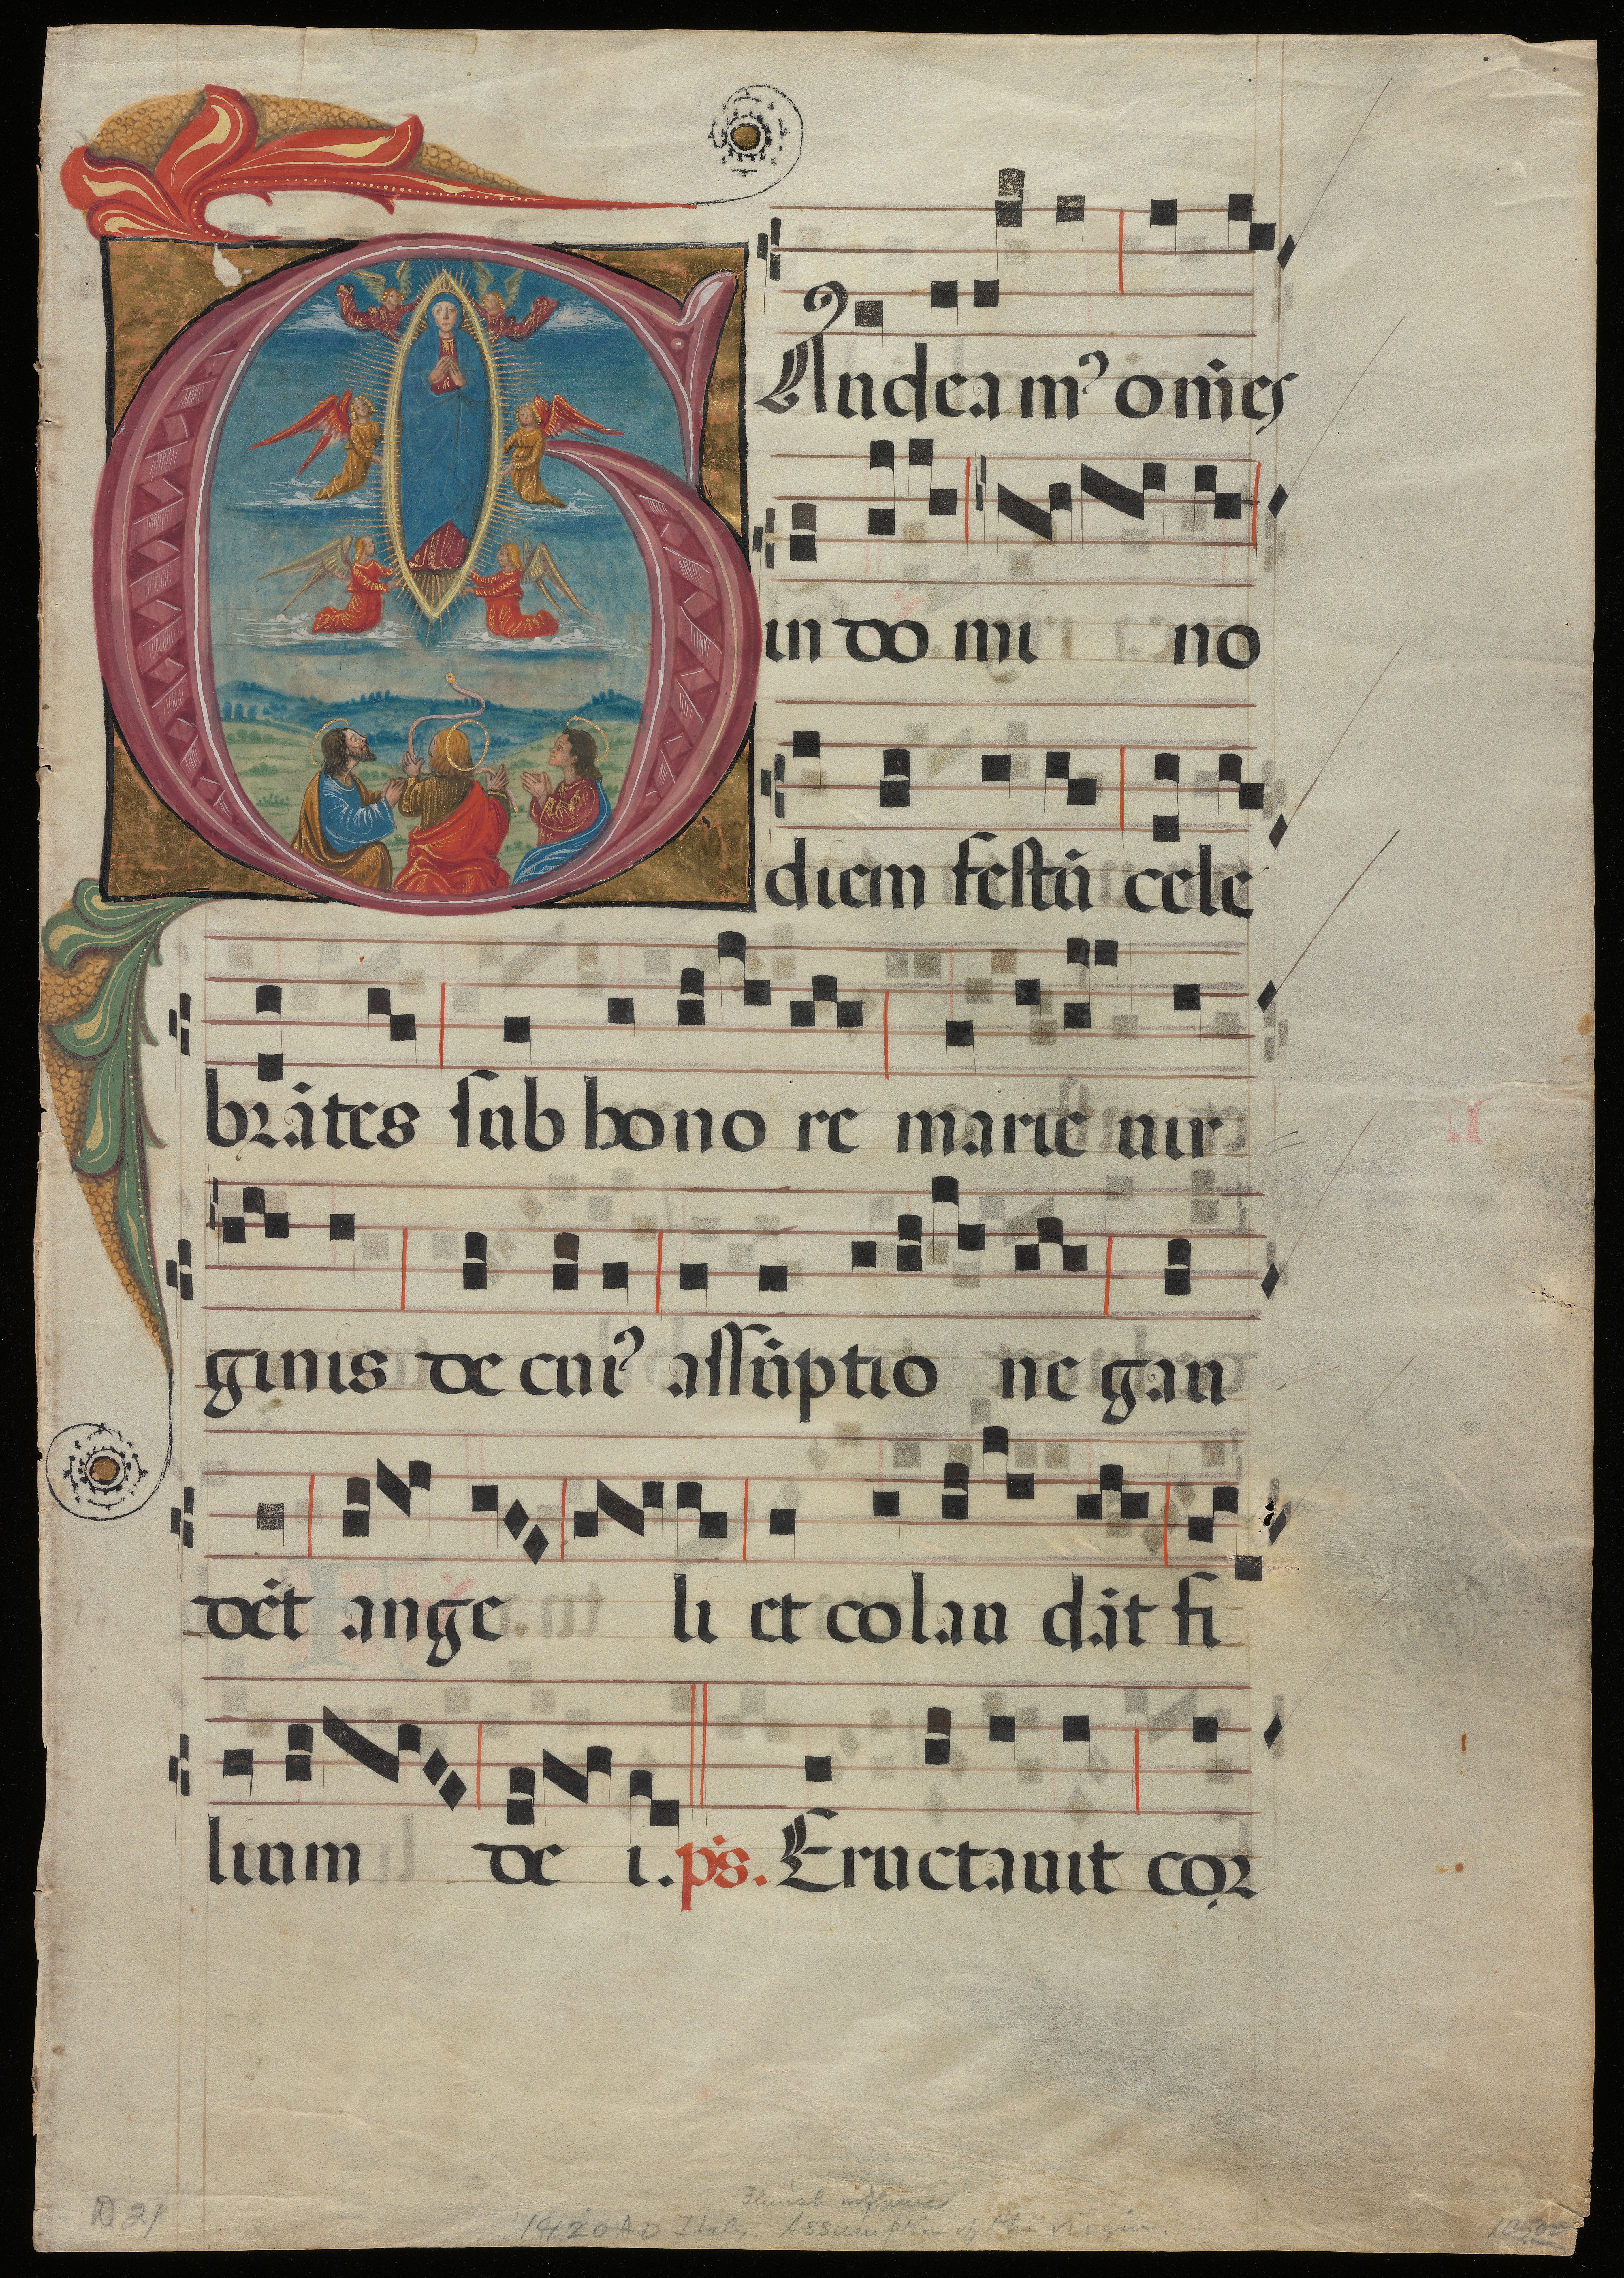 GAudeamꝰ om̄es
in do mi no
diem festū cele
brātes sub hono re marie uir
ginis de cuiꝰ assūptio ne gau
dēt ange li et colau dāt fi
lium de i. ps. Eructauit cor
D 21
Flemish influence
1420 AD Italy. Assumption of the virgin.